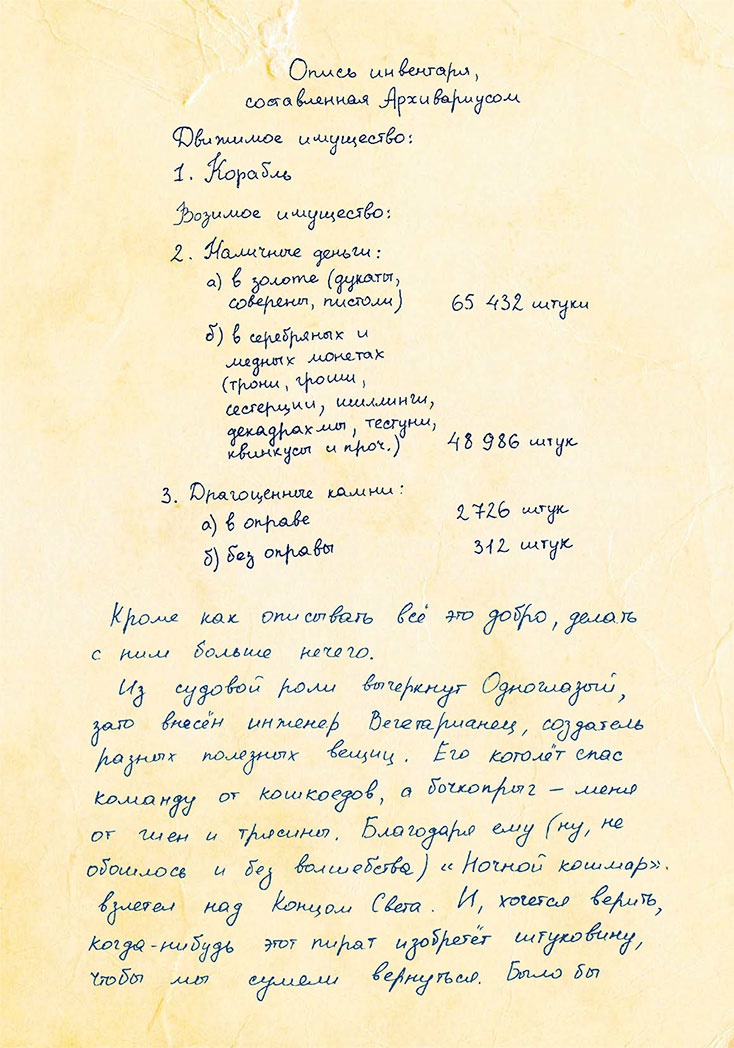 Опись инвентаря,
составленная Архивариусом
Движимое имущество:
1. Корабль
Возимое имущество:
2. Наличные деньги:
а) в золоте (дукаты,
соверены, пистоли) 65 432 штуки
б) в серебряных и
медных монетах
(трони, гроши,
сестерции, шиллинги,
декадрахмы, тестуни,
квинкусы и проч.) 48 986 штук
3. Драгоценные камни:
а) в оправе 2 726 штук
б) без оправы 312 штук
Кроме как описывать всё это добро, делать
с ним больше нечего.
Из судовой роли вычеркнут Одноглазый,
зато внесён инженер Вегетарианец, создатель
разных полезных вещиц. Его котолёт спас
команду от кошкоедов, а бочкопрыг – меня
от гиен и трясины. Благодаря ему (ну, не
обошлось и без волшебства) «Ночной кошмар».
взлетел над Концом Света. И, хочется верить,
когда-нибудь этот пират изобретёт штуковину,
чтобы мы сумели вернуться. Было бы